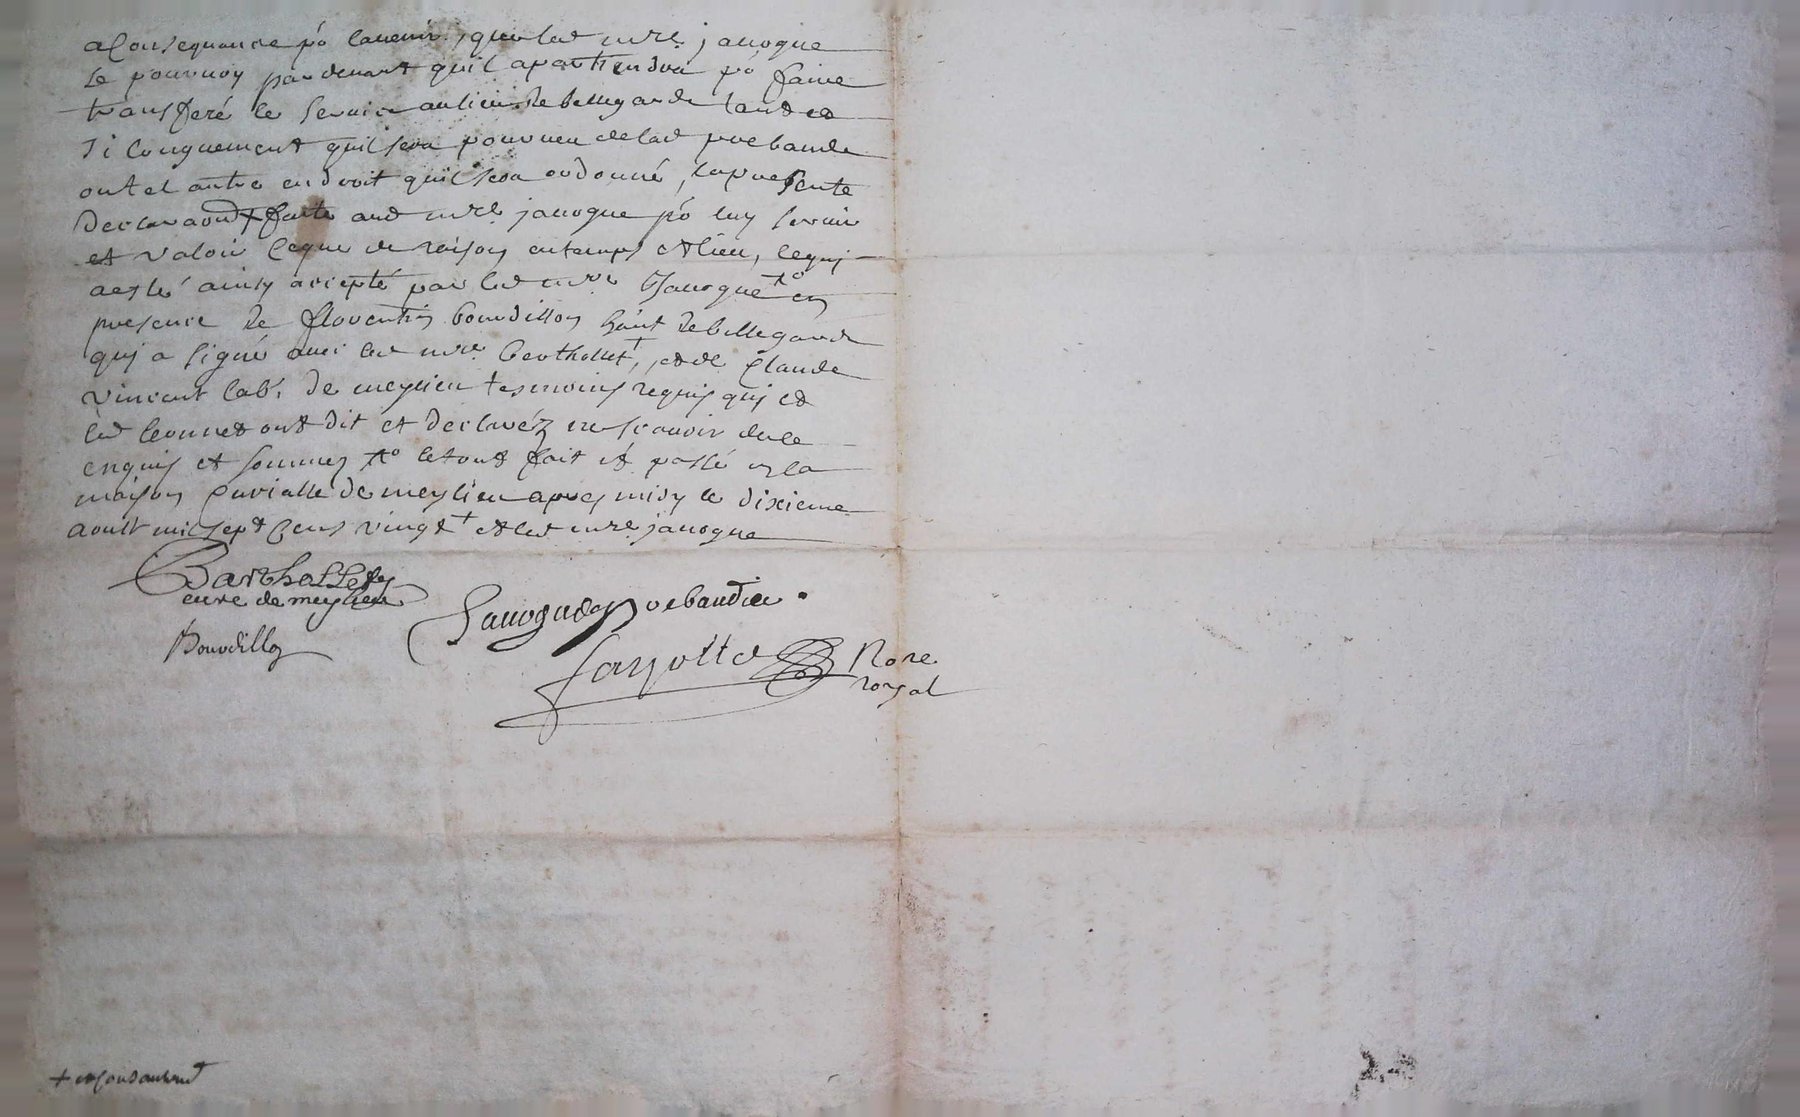 a Consequance po lavenir, que led mre janogue
se pourvoy pardevant quil apartiendra po faire
transferé le service au lieu de bellegarde tand et
si longuement quil sera pourveu delad prebande
ou tel autre endroit quil sera ordonné, la presente
declaraond + faite aud mre janogue po luy servir
et valoir ceque de raison en temps et lieu, lequi
a esté ainsy accepté par led mre Janogue en
presence de florentin bourdillon de bellegarde
qui a signé avec led mre berthollet, et de Claude
vincent lab. de meylieu tesmoins requis qui et
led ont dit et declaréz ne scavoir de ce
enquis et sommez le tout fait et passé en la
maison Curialle de meylieu apres midy le dixieme
aoust mil sept Cens vingt + et led mre janogue
Barthollet
cure de meylieu
Janogue prebandier.
Bourdillon
Nore
royal